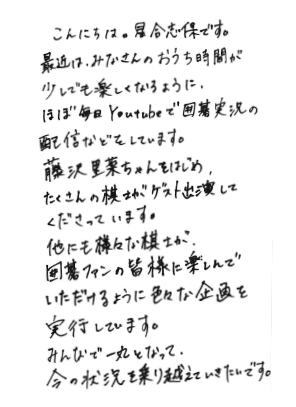 こんにちは。星合志保です。
最近は、みなさんのおうち時間が
少しでも楽しくなるように、
ほぼ毎日Youtubeで囲碁実況の
配信などをしています。
藤沢里菜ちゃんをはじめ、
たくさんの棋士がゲスト出演して
くださっています。
他にも様々な棋士が、
囲碁ファンの皆様に楽しんで
いただけるように色々な企画を
実行しています。
みんなで一丸となって、
今の状況を乗り越えていきたいです。